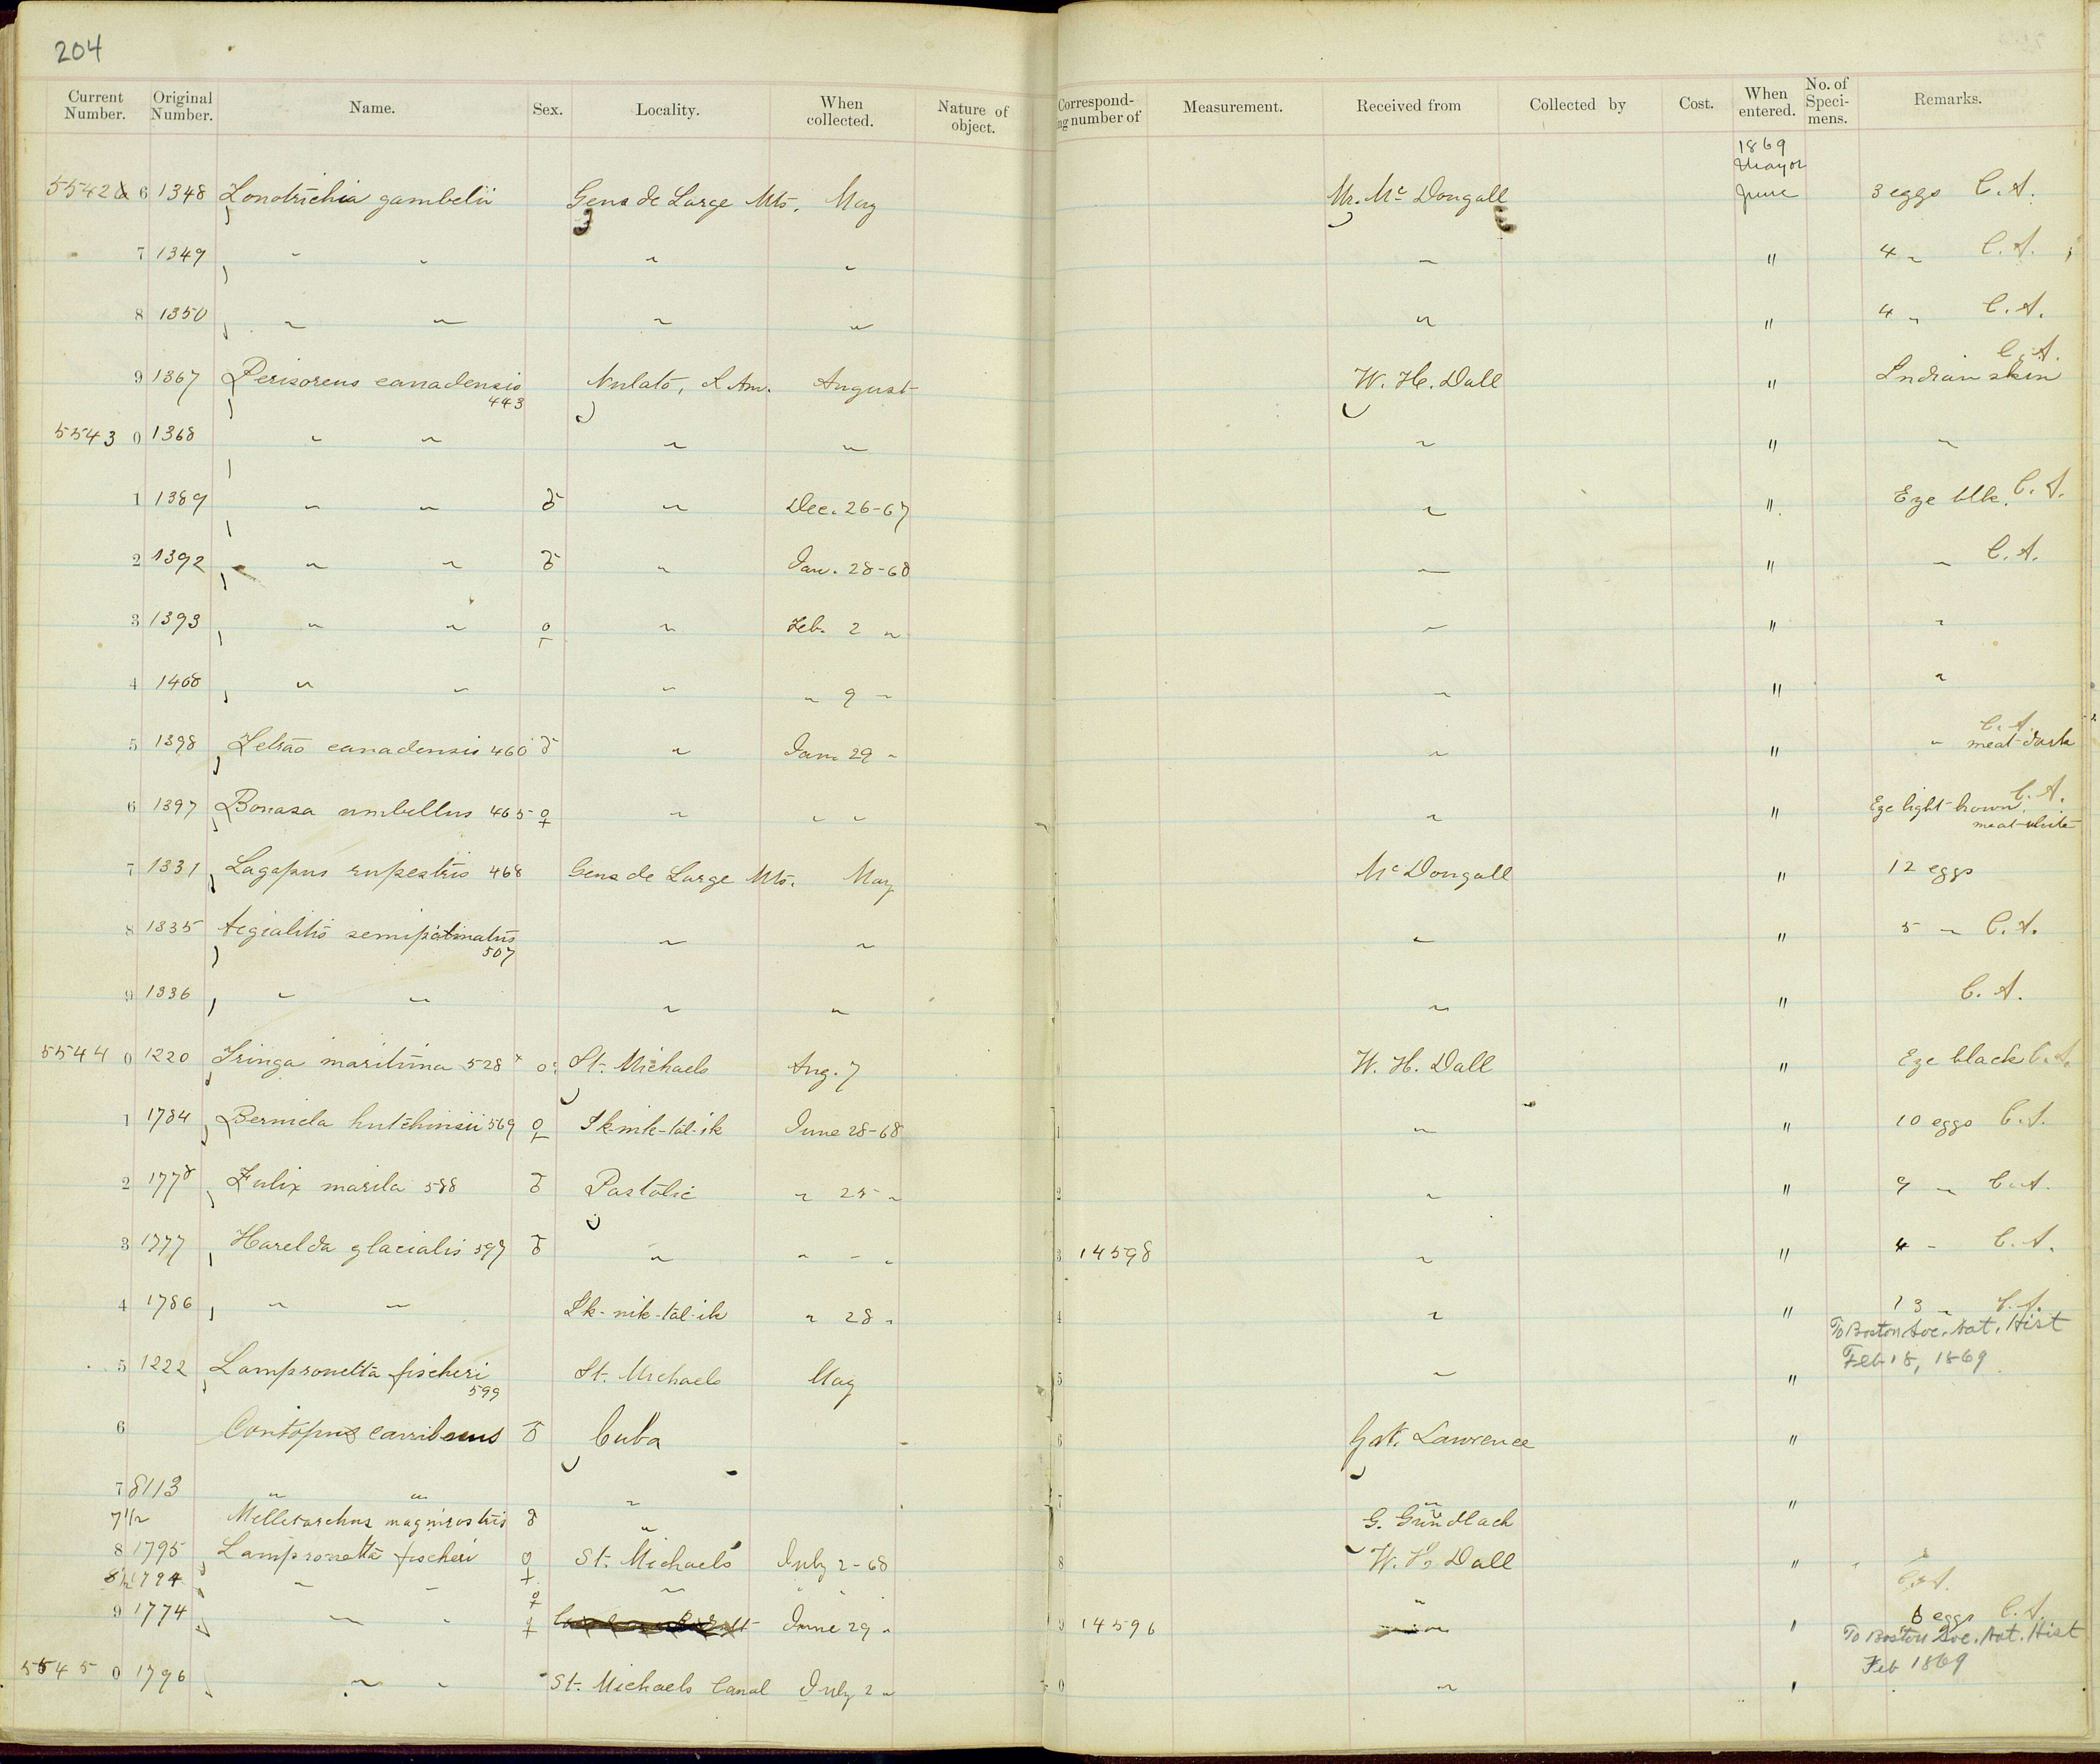 204
Current Number. Original Number. Name. Sex. Locality. When collected. Nature of object. Correspond- ng number of Measurement. Received from Collected by Cost. When entered. No. of Speci- mens. Remarks.
1869
May or
5542 6 1348 Zonotrichia gambelii Gens de Large Mts. May Mr. Mc Dougall June 3 eggs C. A.
7 1349 " " " " " " 4 " C. A.
8 1350 " " " " " " 4 " C. A.
C. A.
9 1367 Perisoreus canadensis Nulato, R. Am. August W. H. Dall " Indian skin
443
5543 0 1368 " " " " " " "
1 1389 " " ♂ " Dec. 26-67 " " Eye blk. C. A.
2 1392 " " ♂ " Jan. 28-68 " " " C. A.
3 1393 " " ♀ " Feb. 2 " " " "
4 1408 " " " " 9 " " " "
C. A.
5 1398 Tetrao canadensis 460 ♂ " Jan. 29 " " " " meat-dark
6 1397 Bonasa umbellus 465 ♀ " " " " " Eye light-brown C. A.
meat-white
7 1331 Lagopus rupestris 468 Gens de Large Mts. May McDougall " 12 eggs
8 1335 Aegialitis semipalmatus " " " " 5 " C. A.
507
9 1336 " " " " " " C. A.
5544 0 1220 Tringa maritima 528 St. Michaels Aug. 7 W. H. Dall " Eye black C. A.
1 1784 Bernicla hutchinsii 569 ♀ Ik-nik-tal-ik June 28-68 " " 10 eggs C. A.
2 1778 Fulix marila 588 ♂ Pastolic " 25 " " " 9 " C. A.
3 1777 Harelda glacialis 597 ♂ " " " " 3 14598 " " 4 " C. A.
4 1786 " " Ik-nik-tal-ik " 28 " 4 " " 13 " C. A.
To Boston Soc. Nat. Hist
Feb 18, 1869
5 1222 Lampronetta fischeri St. Michaels May 5 " "
599
6 Contopus carribaeus ♂ Cuba 6 Lawrence "
7 8113 " " " 7 " "
7 1/2 magnirostris ♂ " G. Gundlach
8 1795 Lampronetta fischeri ♀ St. Michaels July 2-68 8 W. H. Dall "
8 1/2 1794 " " ♀ " " " " C. A.
9 1774 " " ♀ June 29 " 9 14596 " " 6 eggs C. A.
To Boston Soc. Nat. Hist
Feb 1869
5545 0 1796 " " St. Michaels Canal July 2 " 0 " "